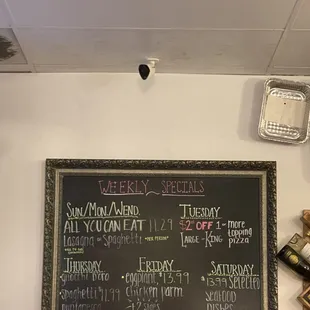 WEEKLY SPECIALS
SUN/MON/WEND.
ALL YOU CAN EAT 11.29
Lasagna or Spaghetti *PER PERSON*
TUESDAY
$2 OFF 1 - more
LARGE - KING topping
pizza
THURSDAY
spaghetti $11.99
FRIDAY
eggplant $13.99
chicken parm
+ 2 sides
SATURDAY
$13.99 Selected
SEAFOOD
DISHES